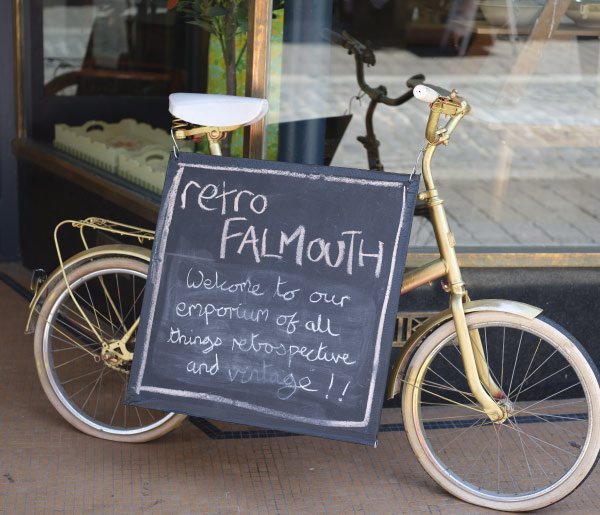 retro
FALMOUTH
Welcome to our
emporium of all
things retrospective
and vintage!!